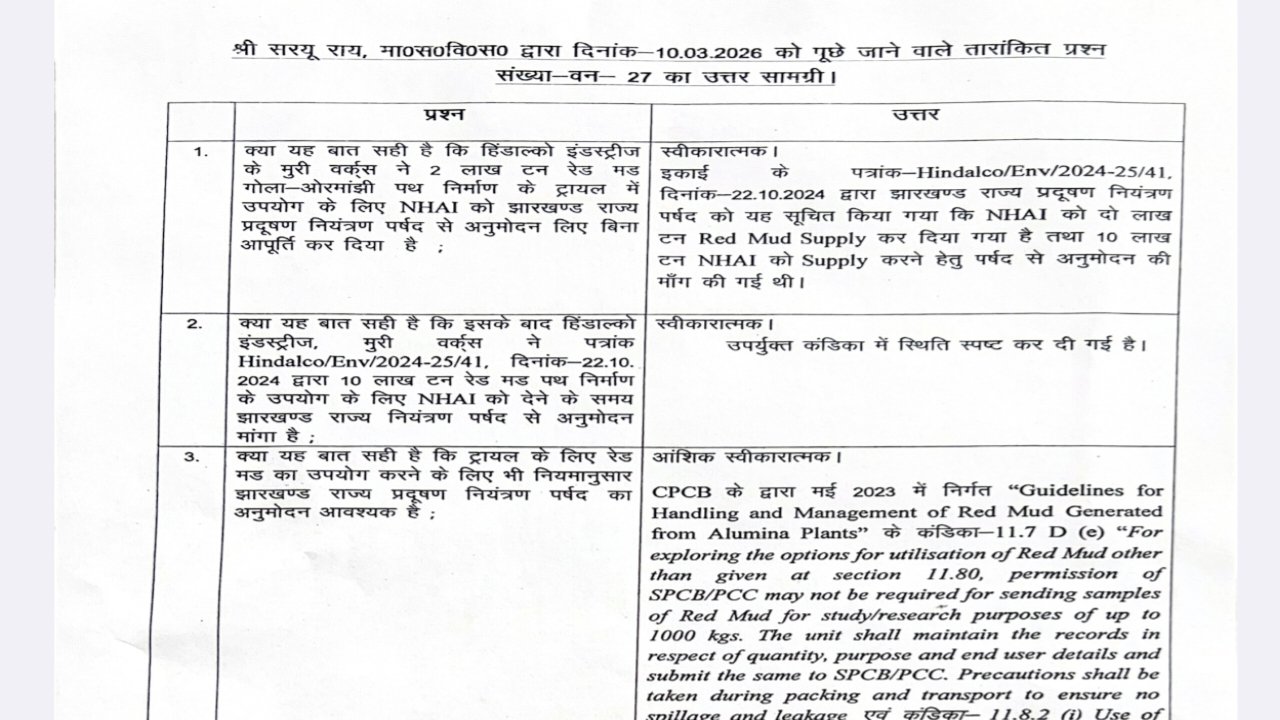 श्री सरयू राय, मा०स०वि०स० द्वारा दिनांक–10.03.2026 को पूछे जाने वाले तारांकित प्रश्न
संख्या–वन– 27 का उत्तर सामग्री।
प्रश्न
उत्तर
1.
क्या यह बात सही है कि हिंडाल्को इंडस्ट्रीज
के मुरी वर्क्स ने 2 लाख टन रेड मड
गोला–ओरमांझी पथ निर्माण के ट्रायल में
उपयोग के लिए NHAI को झारखण्ड राज्य
प्रदूषण नियंत्रण पर्षद से अनुमोदन लिए बिना
आपूर्ति कर दिया है ;
स्वीकारात्मक।
इकाई के पत्रांक–Hindalco/Env/2024-25/41,
दिनांक–22.10.2024 द्वारा झारखण्ड राज्य प्रदूषण नियंत्रण
पर्षद को यह सूचित किया गया कि NHAI को दो लाख
टन Red Mud Supply कर दिया गया है तथा 10 लाख
टन NHAI को Supply करने हेतु पर्षद से अनुमोदन की
माँग की गई थी।
2.
क्या यह बात सही है कि इसके बाद हिंडाल्को
इंडस्ट्रीज, मुरी वर्क्स ने पत्रांक
Hindalco/Env/2024-25/41, दिनांक–22.10.
2024 द्वारा 10 लाख टन रेड मड पथ निर्माण
के उपयोग के लिए NHAI को देने के समय
झारखण्ड राज्य नियंत्रण पर्षद से अनुमोदन
मांगा है ;
स्वीकारात्मक।
उपर्युक्त कंडिका में स्थिति स्पष्ट कर दी गई है।
3.
क्या यह बात सही है कि ट्रायल के लिए रेड
मड का उपयोग करने के लिए भी नियमानुसार
झारखण्ड राज्य प्रदूषण नियंत्रण पर्षद का
अनुमोदन आवश्यक है ;
आंशिक स्वीकारात्मक।
CPCB के द्वारा मई 2023 में निर्गत “Guidelines for
Handling and Management of Red Mud Generated
from Alumina Plants” के कंडिका–11.7 D (e) “For
exploring the options for utilisation of Red Mud other
than given at section 11.80, permission of
SPCB/PCC may not be required for sending samples
of Red Mud for study/research purposes of up to
1000 kgs. The unit shall maintain the records in
respect of quantity, purpose and end user details and
submit the same to SPCB/PCC. Precautions shall be
taken during packing and transport to ensure no
spillage and leakage एवं कंडिका– 11.8.2 (i) Use of